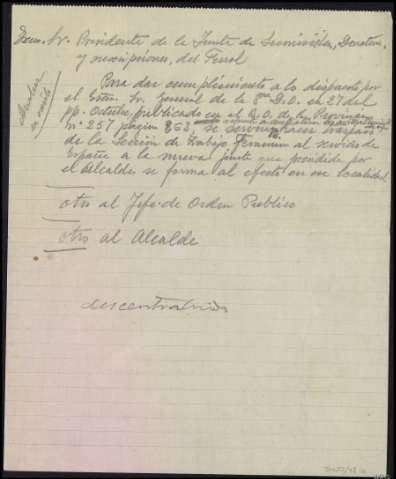 Excmo. Sr. Presidente de la Junta de Suministros, Donativos
y suscripciones, del Ferrol
Para dar cumplimiento a lo dispuesto por
el Excmo. Sr. General de la 8ª D.O. en 27 del
pp. Octubre, publicado en el B.O. de la Provincia
nº 257 página 863, se servirá hacer traspaso
de la Sección de Trabajo Femenino al servicio de
España a la nueva junta que presidida por
el Alcalde se forma al efecto en esa localidad.
otro al Jefe de Orden Publico
otro al Alcalde